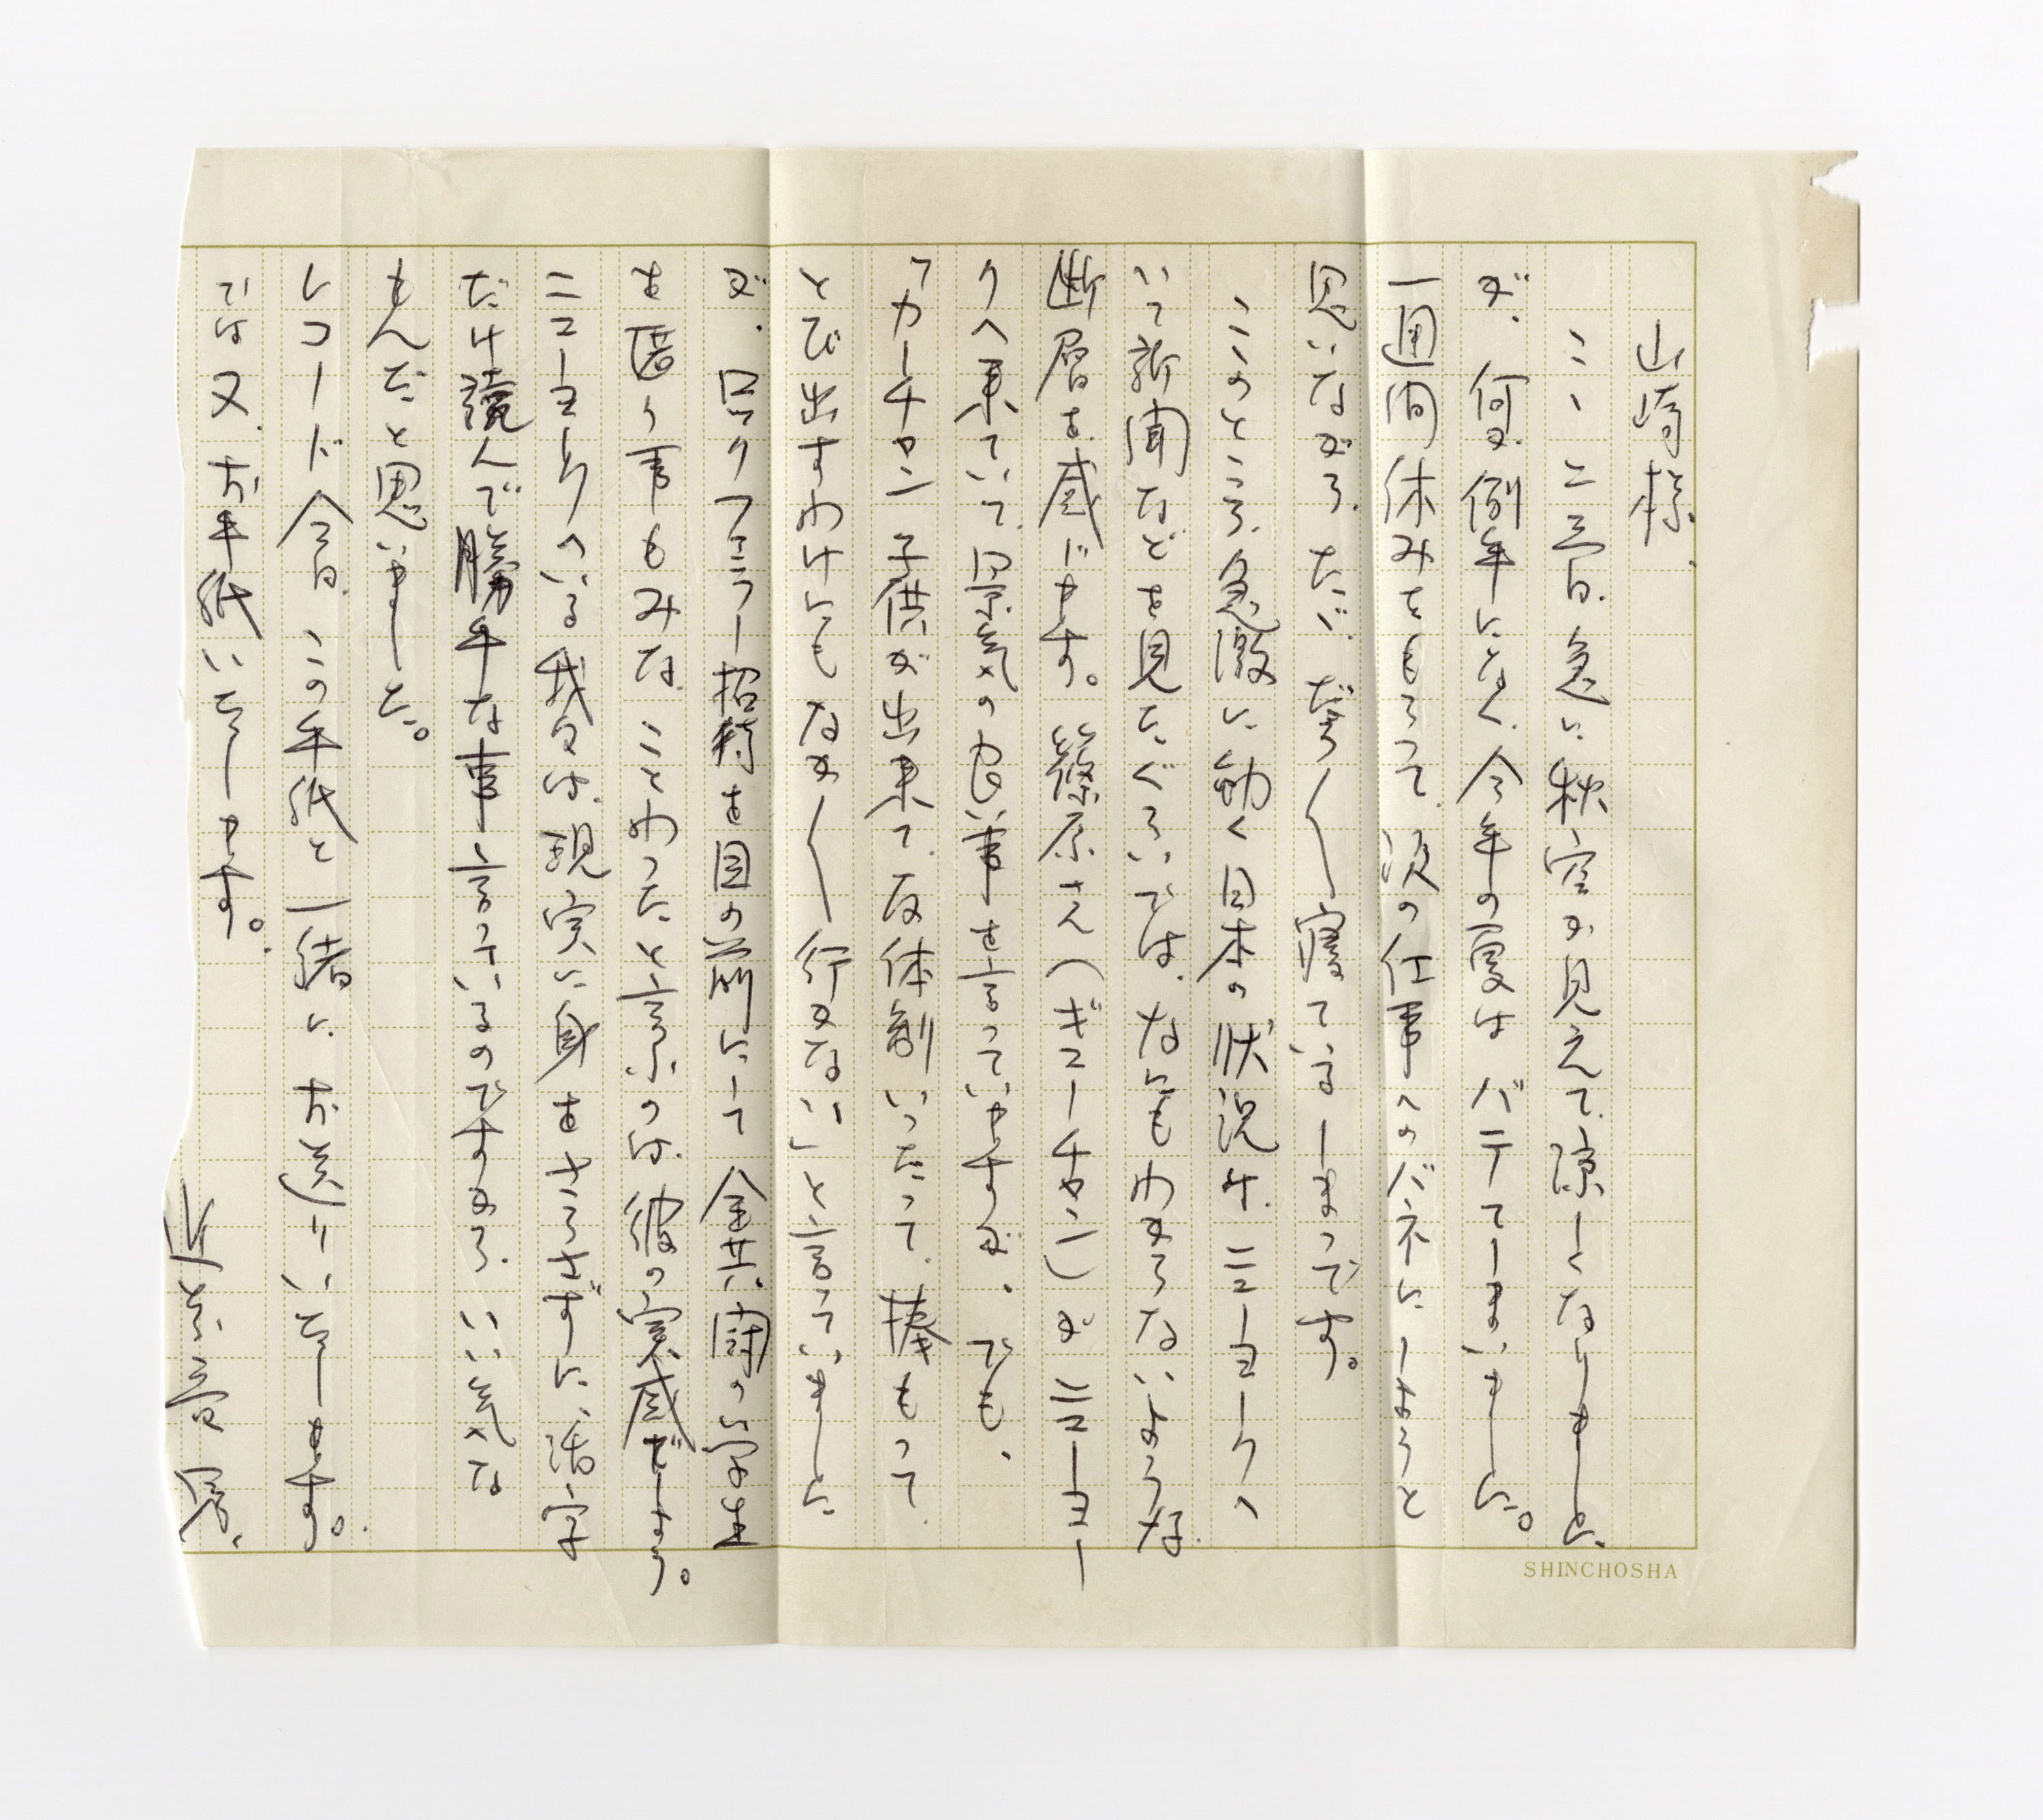 山崎様.
ここ二三日.急に秋空が見えて.涼しくなりましたが.
が.何か例年になく.今年の夏はバテてしまいました。
一週間休みをもらって.次の仕事へのバネにしようと
思いながら.ただ.だらだら寝ているしまつです。
このところ.急激に動く日本の状況は.ニューヨークへ
いて新聞などを見たぐらいでは.なにもわからないような.
断層を感じます。篠原さん(ギューチャン)がニューヨー
クへ来ていて.景気の良い事を言っていますが.でも、
「カーチャン子供が出来て.反体制いったって.棒もって.
とび出すわけにもなか〱行かない」と言っていました
が.ロックフェラー招待を目の前にして全共闘の学生
を匿う事もみな.ことわったと言うのは.彼の実感でしょう。
ニューヨークへいる我々は.現実に身をさらさずに.活字
だけ読んで勝手な事言っているのですから.いい気な
もんだと思いました。
レコード今日.この手紙と一緒にお送りいたします。
では又.お手紙いたします。